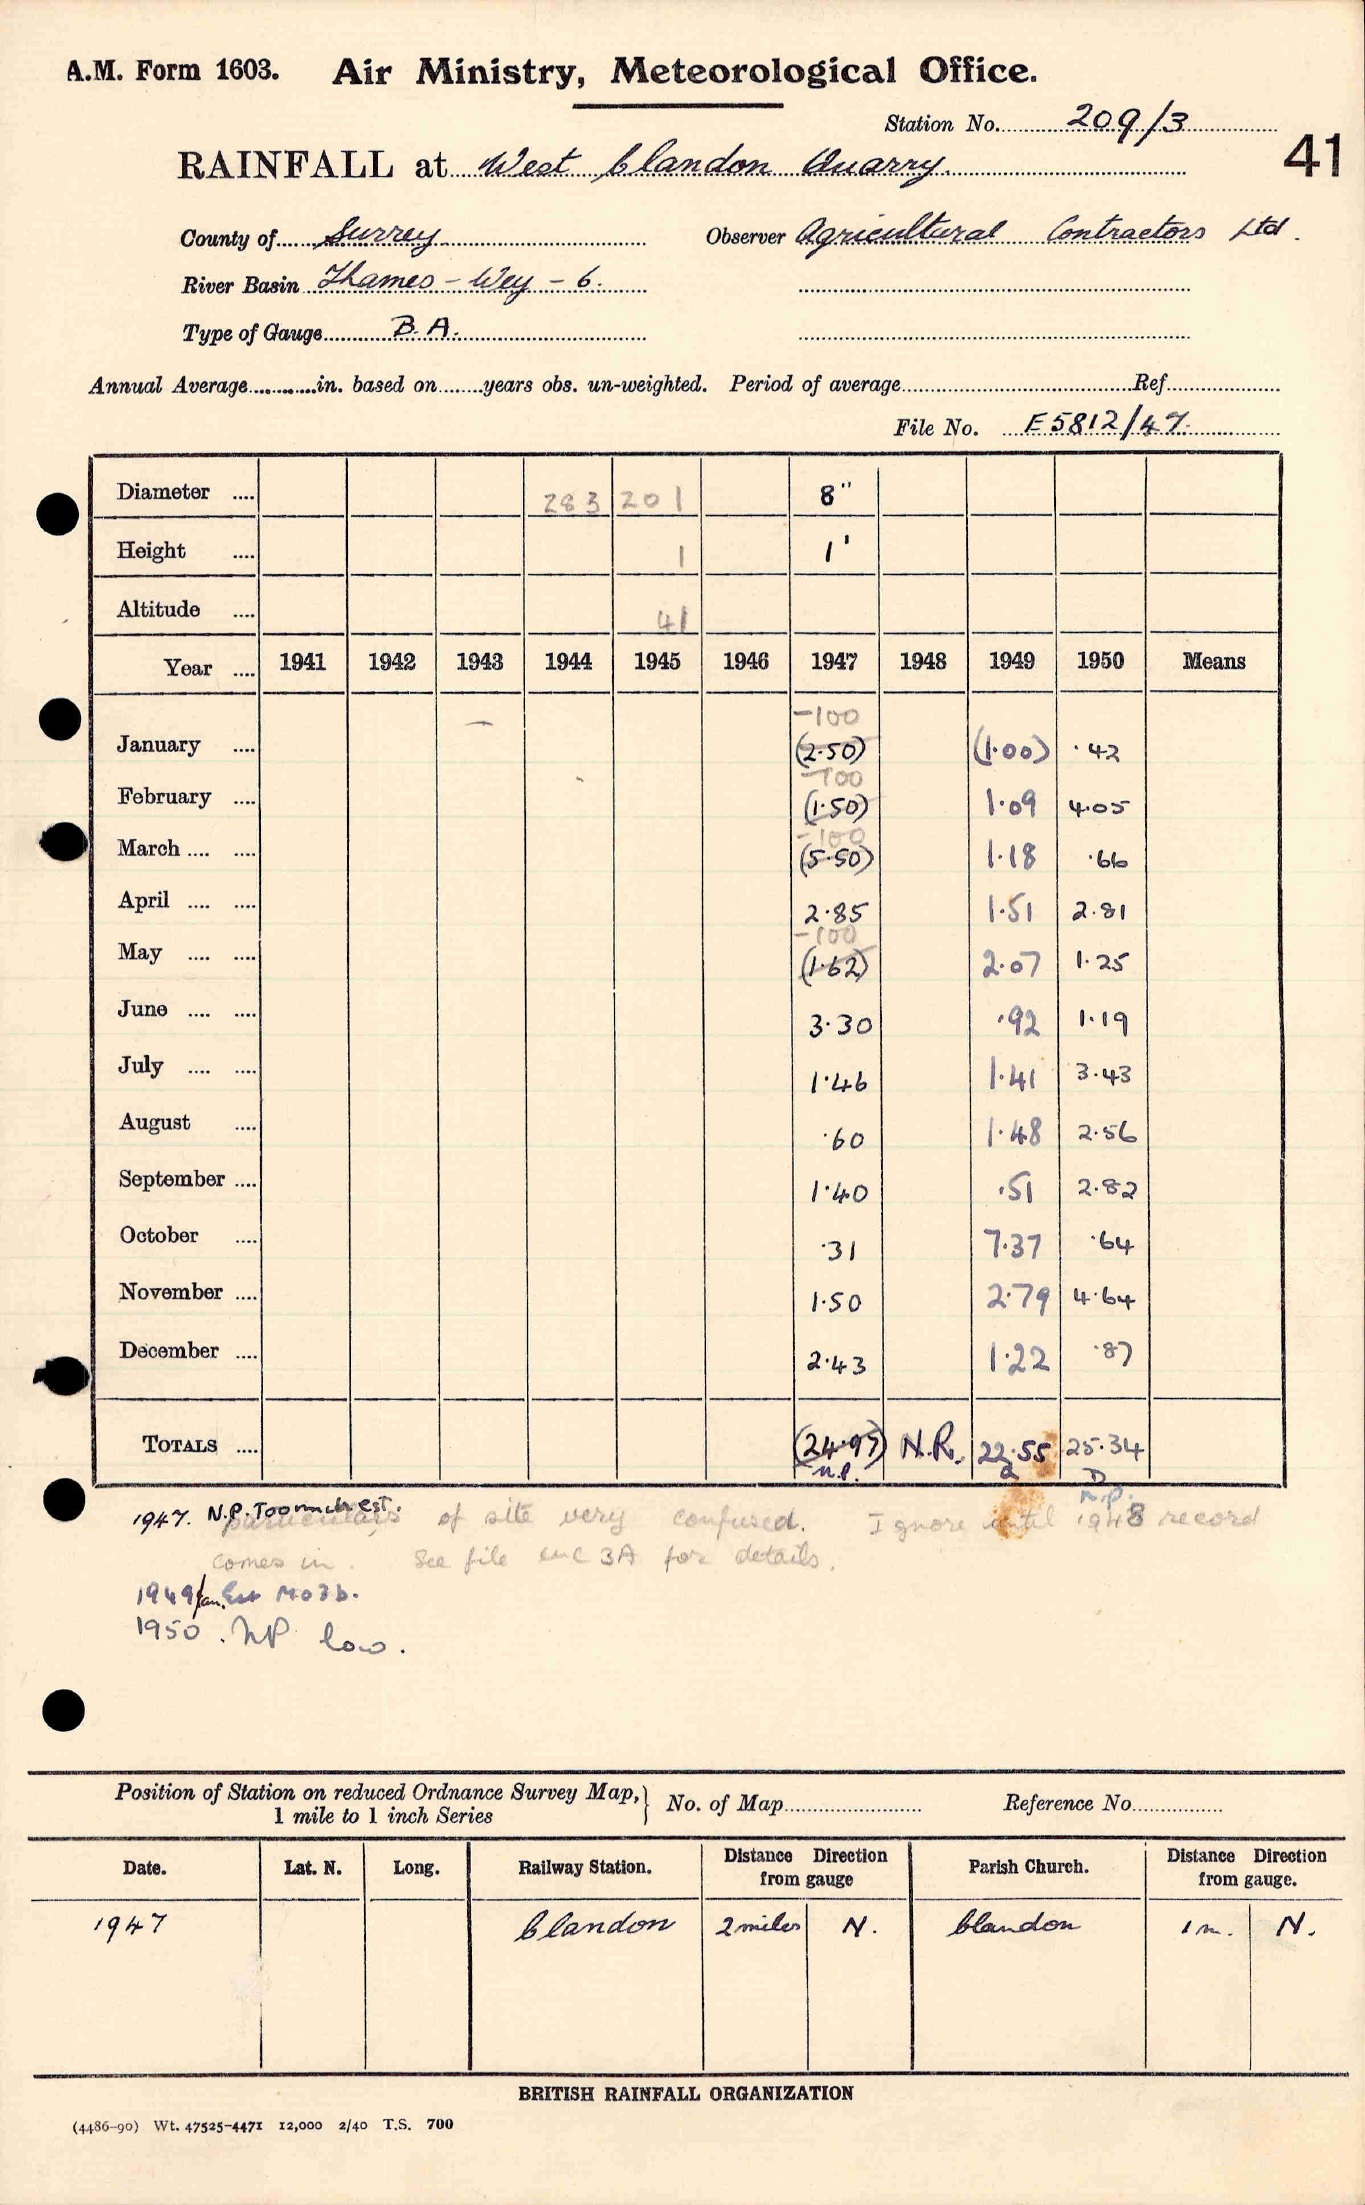 A.M. Form 1603. Air Ministry, Meteorological Office.
Station No. 209/3
41
RAINFALL at West Clandon Quarry.
County of Surrey Observer Agricultural Contractors Ltd.
River Basin Thames - Wey - 6.
Type of Gauge B.A.
Annual Average in. based on years obs. un-weighted. Period of average Ref
File No. E5812/47.
Diameter .... 283 201 8"
Height .... 1 1'
Altitude .... 41
Year .... 1941 1942 1943 1944 1945 1946 1947 1948 1949 1950 Means
-100
January .... (2.50) (1.00) .42
-100
February .... (1.50) 1.09 4.05
-100
March .... .... (5.50) 1.18 .66
April .... .... 2.85 1.51 2.81
-100
May .... .... (1.62) 2.07 1.25
June .... .... 3.30 .92 1.19
July .... .... 1.46 1.41 3.43
August .... .60 1.48 2.56
September .... 1.40 .51 2.82
October .... .31 7.37 .64
November .... 1.50 2.79 4.64
December .... 2.43 1.22 .87
TOTALS .... (24.97) N.R. 22.55 25.34
n.p. a D
n.p.
1947. N.P. Too much est.
particulars of site very confused. Ignore until 1948 record
comes in. See file enc 3A for details.
1949 Jan. Est MO3b.
1950. NP low.
Position of Station on reduced Ordnance Survey Map,
1 mile to 1 inch Series } No. of Map Reference No.
Date. Lat. N. Long. Railway Station. Distance Direction from gauge Parish Church. Distance Direction from gauge.
1947 Clandon 2 miles N. Clandon 1 m. N.
BRITISH RAINFALL ORGANIZATION
(4486-90) Wt. 47525-4471 12,000 2/40 T.S. 700